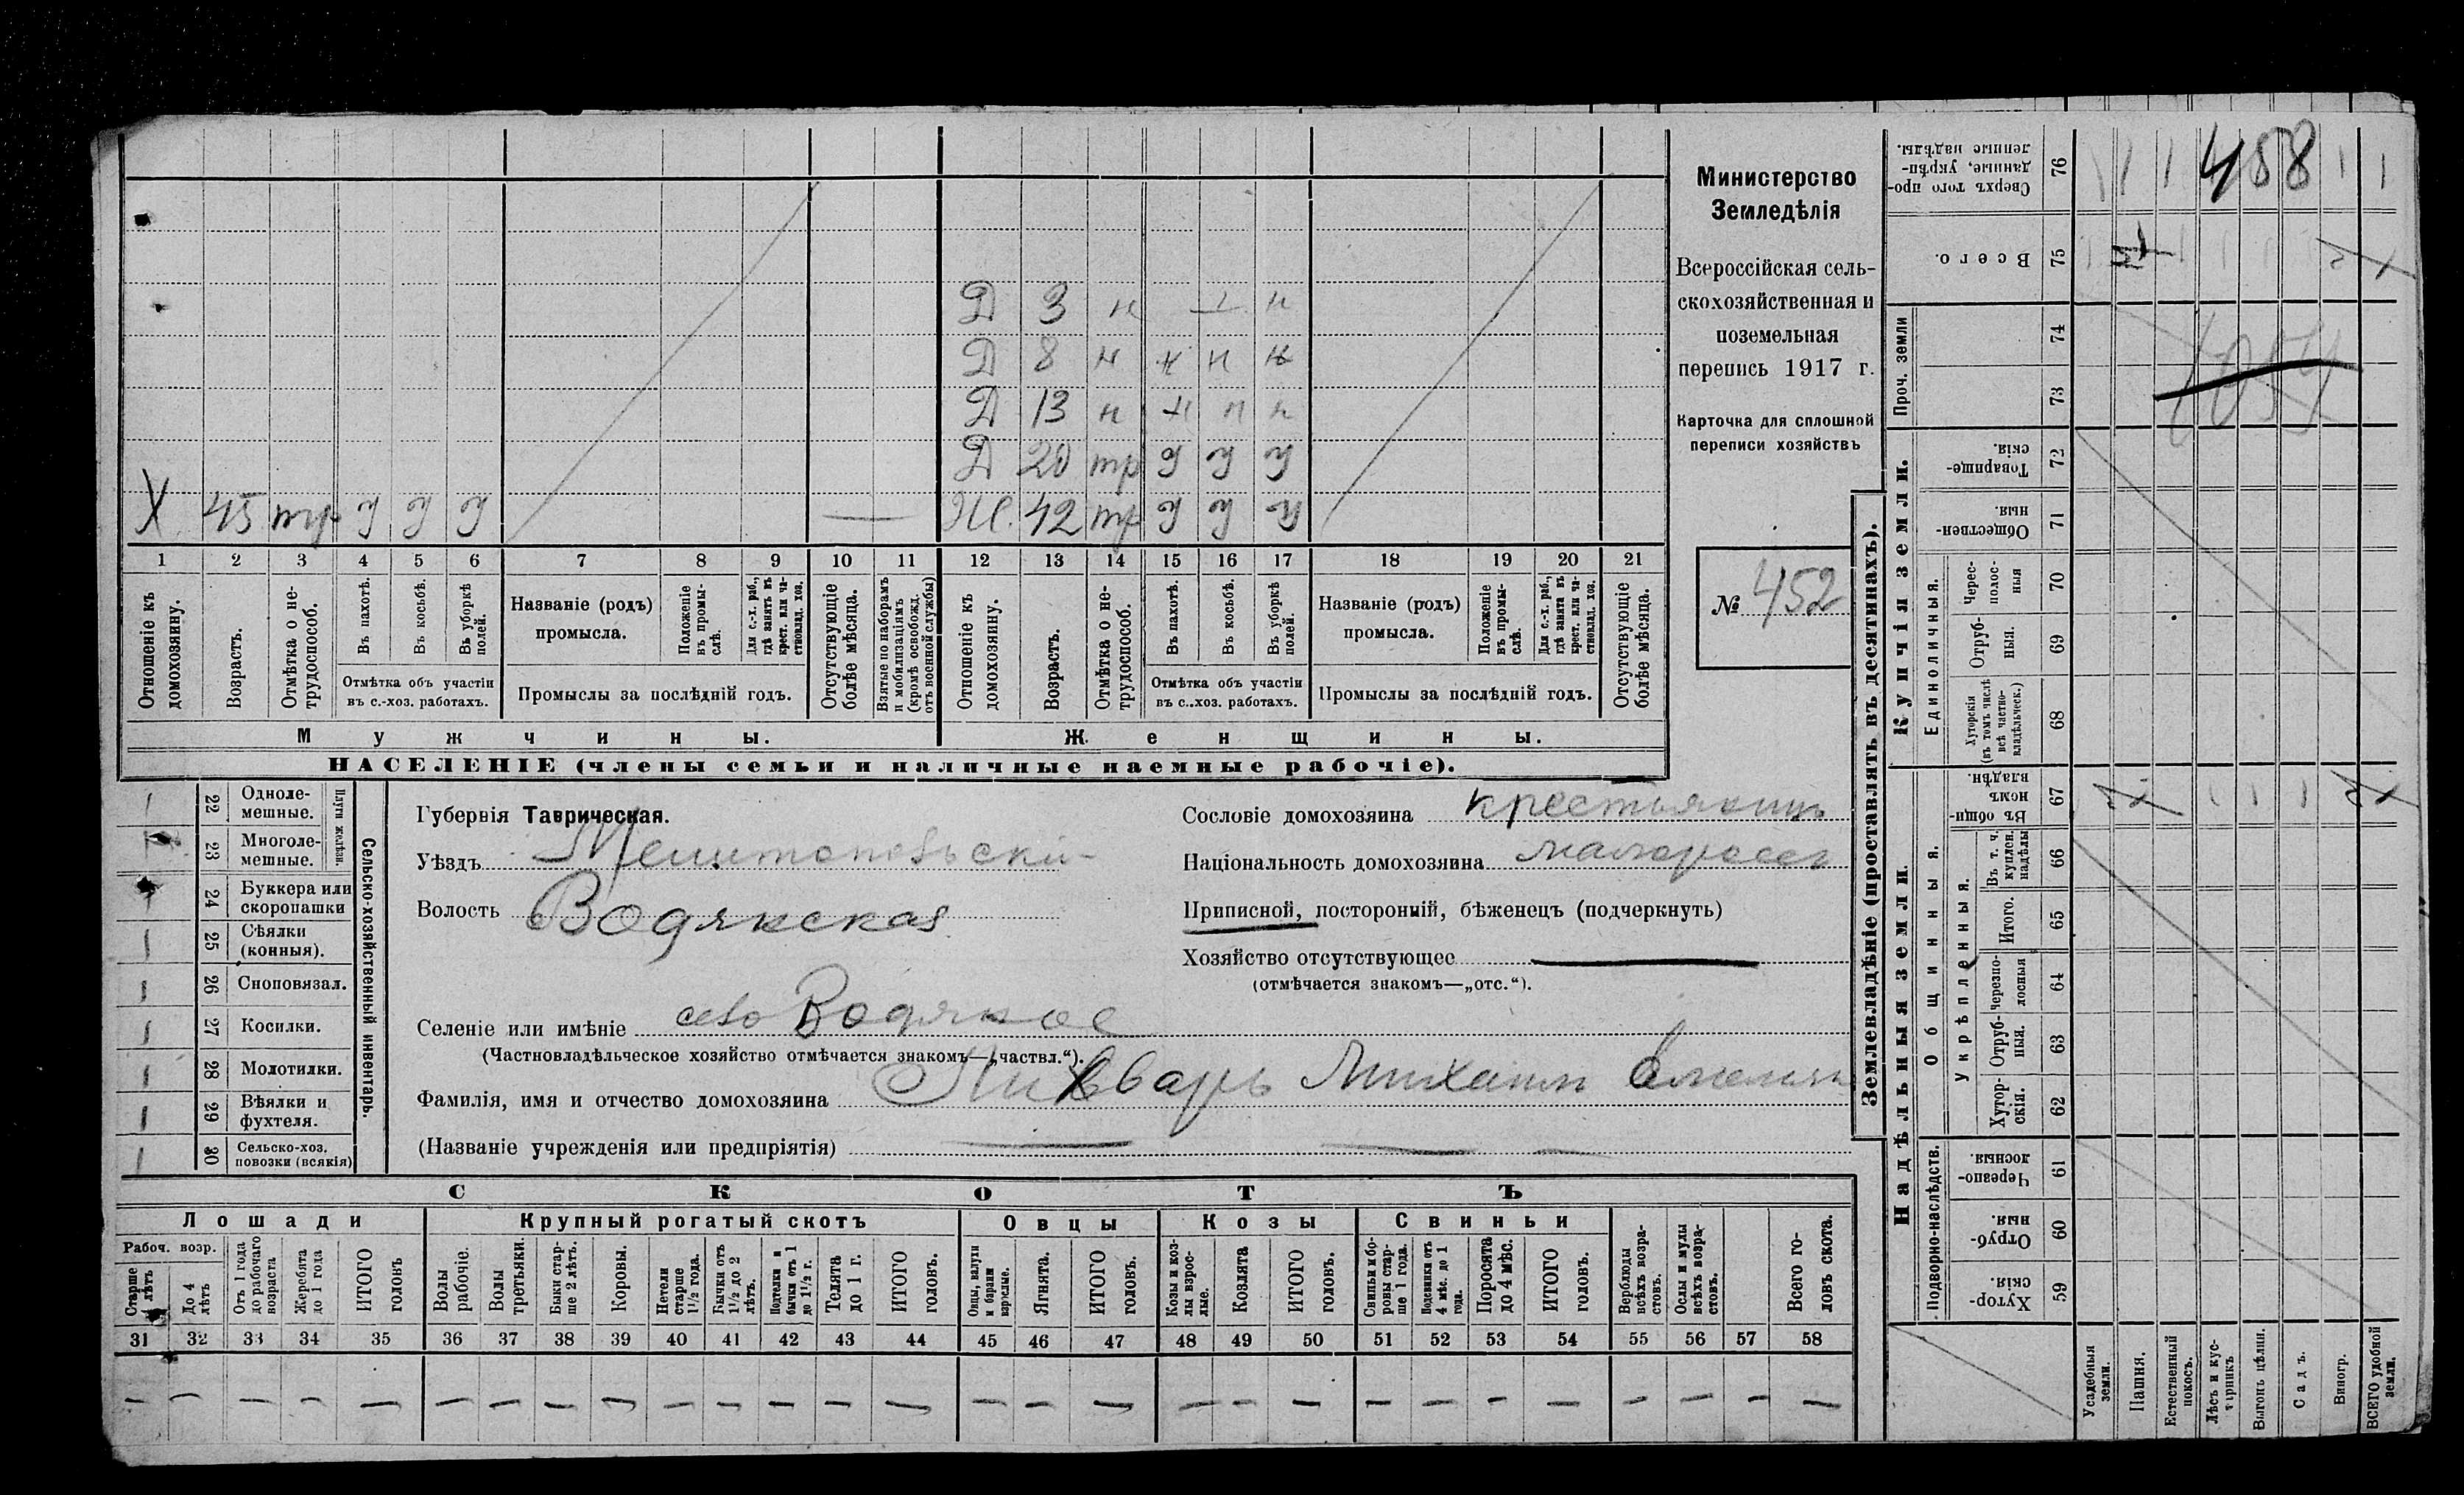 Министерство
Земледѣлія
Всероссійская сель-
скохозяйственная и
поземельная
перепись 1917 г.
Карточка для сплошной
переписи хозяйствъ
№ 452
Д 3 н н
Д 8 н н н н
Д 13 н н н н
Д 20 тр у у у
Х 45 тр у у у — Ж. 42 тр у у у
1 2 3 4 5 6 7 8 9 10 11 12 13 14 15 16 17 18 19 20 21
Отношеніе къ домохозяину.
Возрастъ.
Отмѣтка о не-трудоспособ.
Въ пахотѣ.
Въ косьбѣ.
Въ уборкѣ полей.
Отмѣтка объ участіи
въ с.-хоз. работахъ.
Названіе (родъ)
промысла.
Положеніе въ промы-слѣ.
Для с.-х. раб., гдѣ занятъ въ крест. или ча-стновлад. хоз.
Промыслы за послѣдній годъ.
Отсутствующіе болѣе мѣсяца.
Взятые по наборамъ и мобилизаціямъ (кромѣ освобожд. отъ военной службы)
Отношеніе къ домохозяину.
Возрастъ.
Отмѣтка о не-трудоспособ.
Въ пахотѣ.
Въ косьбѣ.
Въ уборкѣ полей.
Отмѣтка объ участіи
въ с.-хоз. работахъ.
Названіе (родъ)
промысла.
Положеніе въ промы-слѣ.
Для с.-х. раб., гдѣ занята въ крест. или ча-стновлад. хоз.
Промыслы за послѣдній годъ.
Отсутствующіе болѣе мѣсяца.
Мужчины. Женщины.
НАСЕЛЕНІЕ (члены семьи и наличные наемные рабочіе).
Сельско-хозяйственный инвентарь.
Плуги желѣзн.
22 Одноле-мешные.
23 Многоле-мешные.
24 Буккера или скоропашки
25 Сѣялки (конныя).
26 Сноповязал.
27 Косилки.
28 Молотилки.
29 Вѣялки и фухтеля.
30 Сельско-хоз. повозки (всякія)
Губернія Таврическая.
Уѣздъ Мелитопольскій
Волость Водянская
Селеніе или имѣніе село Водяное
(Частновладѣльческое хозяйство отмѣчается знакомъ—„частвл.“).
Фамилія, имя и отчество домохозяина Михаилъ
(Названіе учрежденія или предпріятія) —
Сословіе домохозяина крестьянинъ
Національность домохозяина малороссъ
Приписной, посторонній, бѣженецъ (подчеркнуть)
Хозяйство отсутствующее —
(отмѣчается знакомъ—„отс.“).
СКОТЪ
Лошади Крупный рогатый скотъ Овцы Козы Свиньи
Рабоч. возр.
Старше 4 лѣтъ
До 4 лѣтъ
Отъ 1 года до рабочаго возраста
Жеребята до 1 года
ИТОГО головъ
Волы рабочіе.
Волы третьяки.
Быки стар-ше 2 лѣтъ.
Коровы.
Нетели старше 1½ года.
Бычки отъ 1½ до 2 лѣтъ.
Подтелки и бычки отъ 1 до 1½ г.
Телята до 1 г.
ИТОГО головъ.
Овцы, валухи и бараны взрослые.
Ягнята.
ИТОГО головъ.
Козы и коз-лы взрос-лые.
Козлята
ИТОГО головъ.
Свиньи и бо-ровы стар-ше 1 года.
Подсвинки отъ 4 мѣс. до 1 года.
Поросята до 4 мѣс.
ИТОГО головъ.
Верблюды всѣхъ возра-стовъ.
Ослы и мулы всѣхъ возра-стовъ.
Всего го-ловъ скота.
31 32 33 34 35 36 37 38 39 40 41 42 43 44 45 46 47 48 49 50 51 52 53 54 55 56 57 58
— — — — — — — — — — — — — — — — — — — — — — — — — — — —
Землевладѣніе (проставлять въ десятинахъ).
Надѣльныя земли.
Купчія земли.
Проч. земли
Подворно-наслѣдств.
Общинныя.
Укрѣпленныя.
Единоличныя.
Хутор-скія. 59
Отруб-ныя. 60
Черезпо-лосныя 61
Хутор-скія. 62
Отруб-ныя. 63
Черезпо-лосныя 64
Итого. 65
Въ т. ч. куплен. надѣлы 66
Въ общи-номъ владѣн. 67
Хуторскія (въ томъ числѣ всѣ частно-владѣльческ.) 68
Отруб-ныя. 69
Черес-полос-ныя 70
Обществен-ныя. 71
Товарище-скія. 72
73
74
Всего. 75
Сверхъ того про-данные, укрѣп-ленные надѣлы. 76
458
Усадебныя земли.
Пашня.
Естественный покосъ.
Лѣсъ и кус-тарникъ
Выгонъ цѣлин.
Садъ.
Виногр.
ВСЕГО удобной земли.